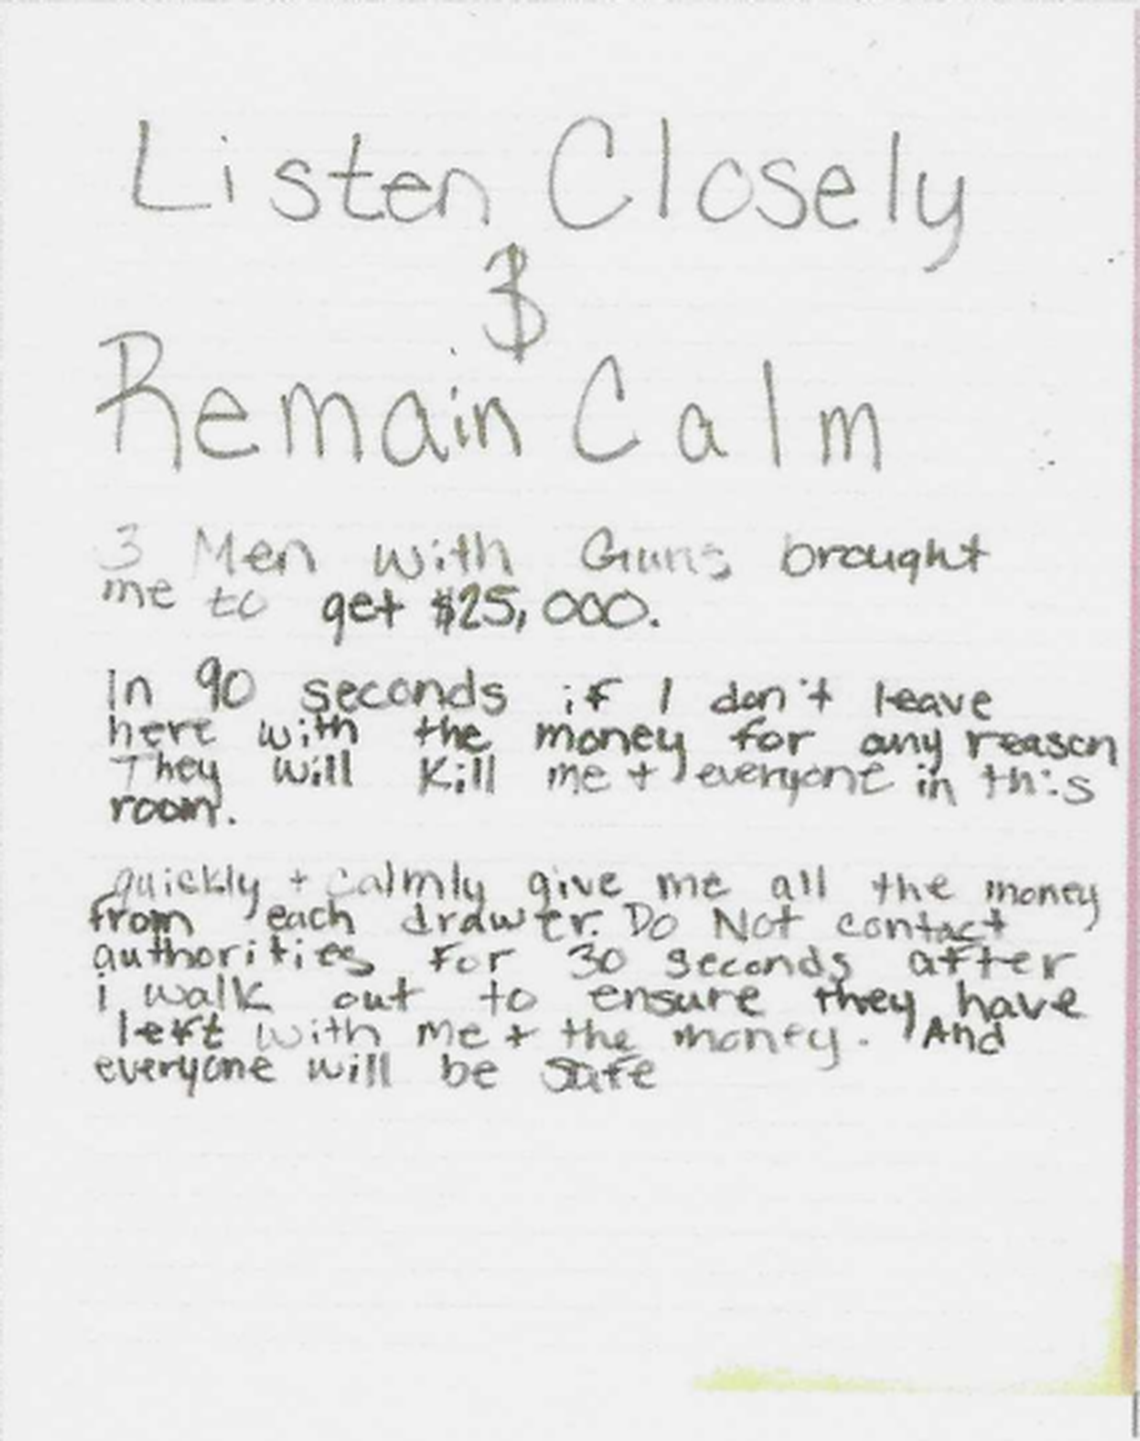 Listen Closely
&
Remain Calm
3 Men with Guns brought
me to get $25,000.
In 90 seconds if I don't leave
here with the money for any reason
They will kill me + everyone in this
room.
quickly + calmly give me all the money
from each drawer. Do Not contact
authorities for 30 seconds after
i walk out to ensure they have
left with me + the money. And
everyone will be safe